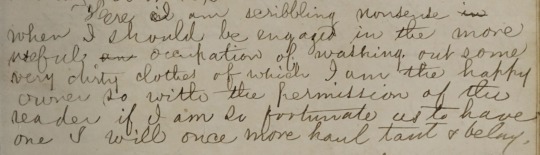 Here I am scribbling nonsense in
when I should be engaged in the more
useful occupation of washing out some
very dirty clothes of which I am the happy
owner so with the permission of the
reader if I am so fortunate as to have
one I will once more haul taut & belay.